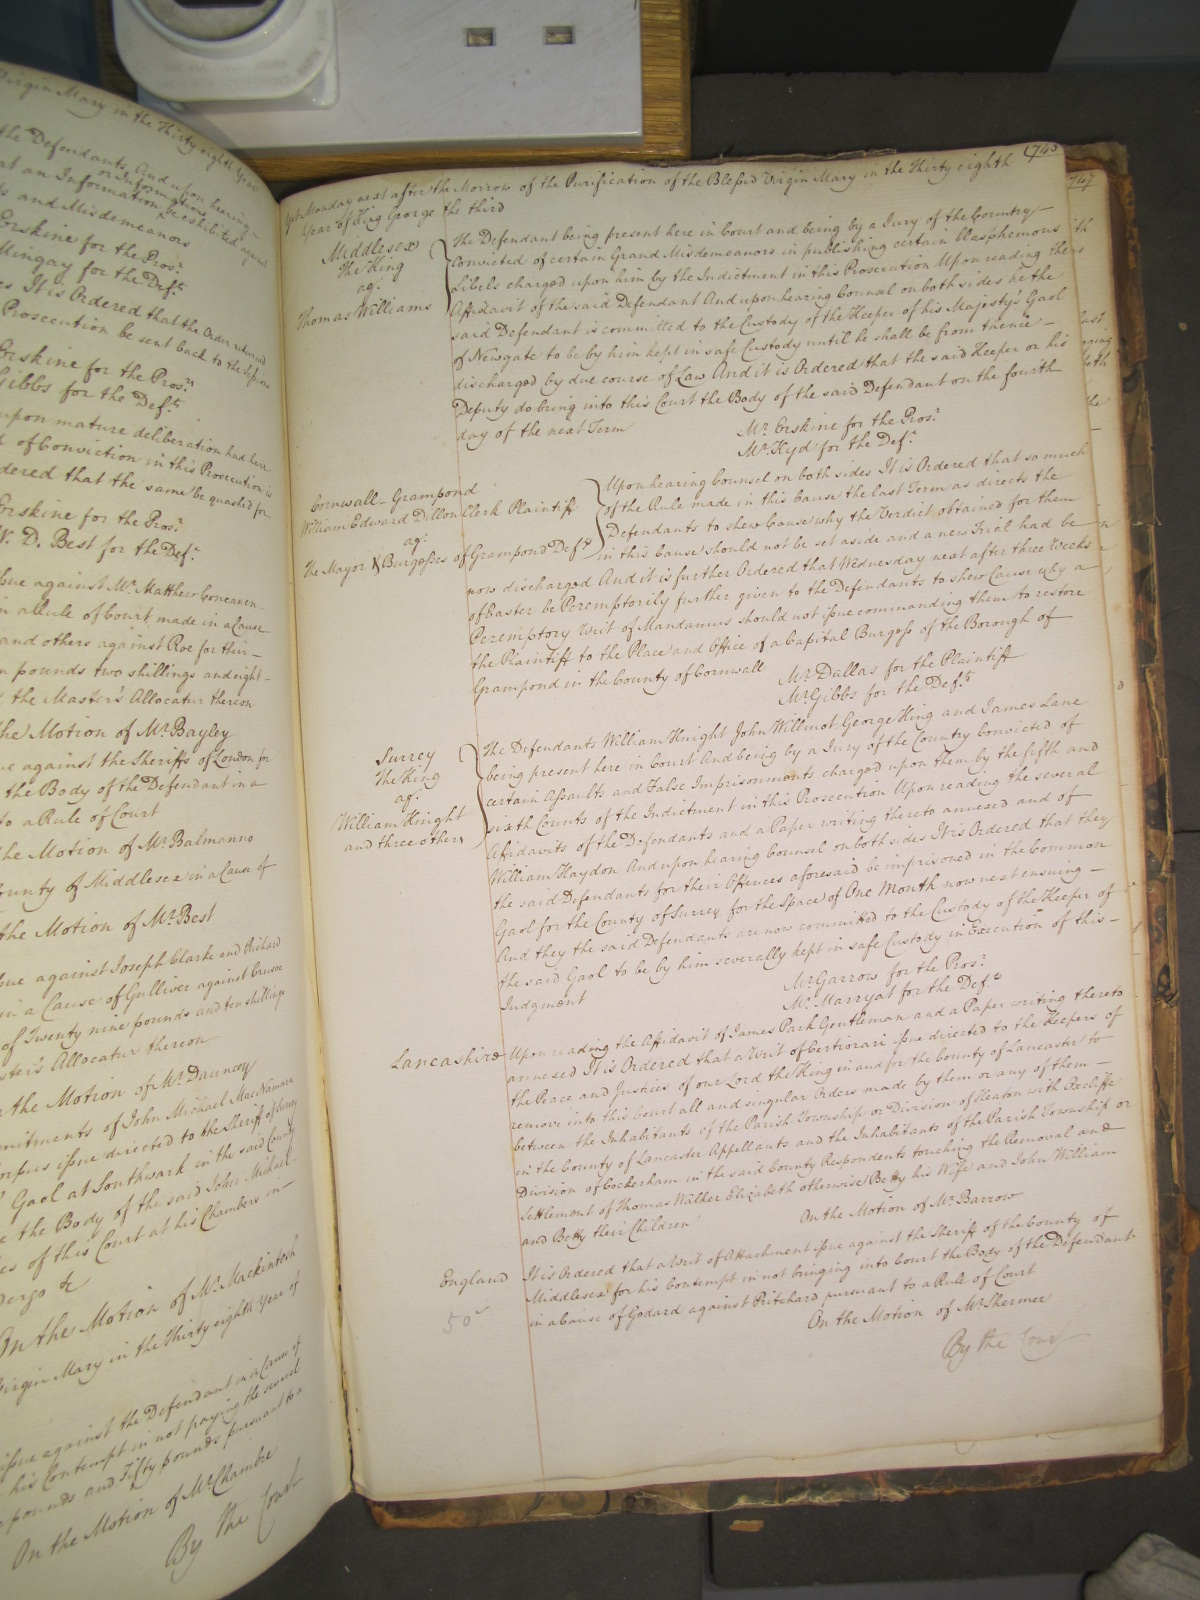 Virgin Mary in the Thirty eighth Year
the Defendants And upon hearing
or Informations
at an Information be exhibited against
s and Misdemeanors
Erskine for the Pros.r
Mingay for the Def.t
es It is Ordered that the Order returned
Prosecution be sent back to the Sessions
Erskine for the Pros.r
Gibbs for the Def.t
upon mature deliberation had here
of Conviction in this Prosecution is
dered that the same be quashed for
Erskine for the Pros.r
W. D. Best for the Def.t
ssue against Mr. Matthew Concanen
in a Rule of Court made in a Cause
and others against Roe for thir-
n pounds two shillings and eight-
the Master's Allocatur thereon
the Motion of Mr. Bayley
ue against the Sheriffs of London for
the Body of the Defendant in a
to a Rule of Court
the Motion of Mr. Balmanno
ounty of Middlesex in a Cause of
the Motion of Mr. Best
ssue against Joseph Clarke and Richard
in a Cause of Gulliver against
of Twenty nine pounds and ten shillings
ster's Allocatur thereon
the Motion of Mr. Dauncey
mmitments of John Michael MacNamara
Corpus issue directed to the Sheriff of Surrey
Gaol at Southwark in the said County
e the Body of the said John Michael
es of this Court at his Chambers in
&c
On the Motion of Mr. Mackintosh
Virgin Mary in the Thirty eighth Year of
issue against the Defendant in a Cause of
his Contempt in not paying the several
pounds and Fifty pounds pursuant to a
On the Motion of Mr. Chambre
By the Court
1745
747
Yet Monday next after the Morrow of the Purification of the Blessed Virgin Mary in the Thirty eighth
Year of King George the third
Middlesex
The King
ag.t
Thomas Williams
The Defendant being present here in Court and being by a Jury of the Country
Convicted of certain Grand Misdemeanors in publishing certain blasphemous
Libels charged upon him by the Indictment in this Prosecution Upon reading the
Affidavit of the said Defendant And upon hearing Counsel on both sides he the
said Defendant is committed to the Custody of the Keeper of his Majesty's Gaol
of Newgate to be by him kept in safe Custody until he shall be from thence
discharged by due course of Law And it is Ordered that the said Keeper or his
Deputy do bring into this Court the Body of the said Defendant on the fourth
day of the next Term
Mr. Erskine for the Pros.r
Mr. Kyd for the Def.t
Cornwall - Grampond
William Edward Dillon Clerk Plaintiff
ag.t
The Mayor & Burgesses of Grampond Def.ts
Upon hearing Counsel on both sides It is Ordered that so much
of the Rule made in this Cause the last Term as directs the
Defendants to shew Cause why the Verdict obtained for them
in this Cause should not be set aside and a new Trial had be
now discharged And it is further Ordered that Wednesday next after three Weeks
of Easter be Peremptorily further given to the Defendants to shew Cause why a
Peremptory Writ of Mandamus should not issue commanding them to restore
the Plaintiff to the Place and Office of a Capital Burgess of the Borough of
Grampond in the County of Cornwall
Mr. Dallas for the Plaintiff
Mr. Gibbs for the Def.ts
Surrey
The King
ag.t
William Knight
and three others
The Defendants William Knight John Willmot George King and James Lane
being present here in Court And being by a Jury of the Country Convicted of
certain Assaults and False Imprisonments charged upon them by the fifth and
sixth Counts of the Indictment in this Prosecution Upon reading the several
Affidavits of the Defendants and a Paper writing thereto annexed and of
William Haydon And upon hearing Counsel on both sides It is Ordered that they
the said Defendants for their Offences aforesaid be imprisoned in the Common
Gaol for the County of Surrey for the Space of One Month now next ensuing
And they the said Defendants are now committed to the Custody of the Keeper of
the said Gaol to be by him severally kept in safe Custody in Execution of this
Judgment
Mr. Garrow for the Pros.r
Mr. Marryat for the Def.ts
Lancashire
Upon reading the Affidavit of James Park Gentleman and a Paper writing thereto
annexed It is Ordered that a Writ of Certiorari issue directed to the Keepers of
the Peace and Justices of our Lord the King in and for the County of Lancaster to
remove into this Court all and singular Orders made by them or any of them
between the Inhabitants of the Parish Township or Division of Heaton with Oxcliffe
in the County of Lancaster Appellants and the Inhabitants of the Parish Township or
Division of Cockerham in the said County Respondents touching the Removal and
Settlement of Thomas Walker Elizabeth otherwise Betty his Wife and John William
and Betty their Children
On the Motion of Mr. Barrow
England
It is Ordered that a Writ of Attachment issue against the Sheriff of the County of
Middlesex for his Contempt in not bringing into Court the Body of the Defendant
in a Cause of Godard against Pritchard pursuant to a Rule of Court
On the Motion of Mr. Shermer
50
By the Court